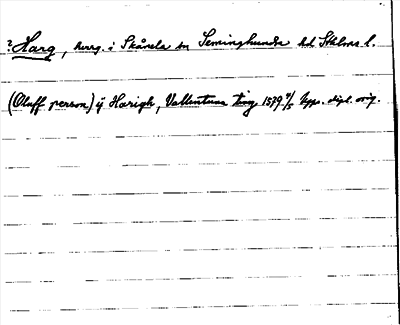 ? Harg, herrg. i Skånela sn Seminghundra hd Sthlms l.
(Oluff person) ij Harigh, Vallentuna ting 1579 4/5 Upps. dipl. orig.